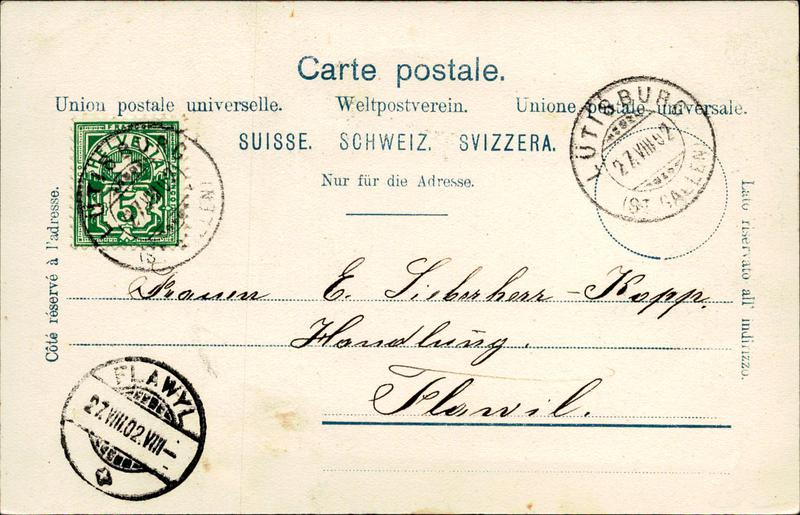 Carte postale.
Union postale universelle. Weltpostverein. Unione postale universale.
SUISSE. SCHWEIZ. SVIZZERA.
Nur für die Adresse.
Côté réservé à l'adresse.
Lato riservato all' indirizzo.
HELVETIA
5
LÜTISBURG
27.VIII.02
(ST GALLEN)
Frauen E. Lieberherr-Kopp.
Handlung.
Flawil.
FLAWYL
27.VIII.02.VIII—